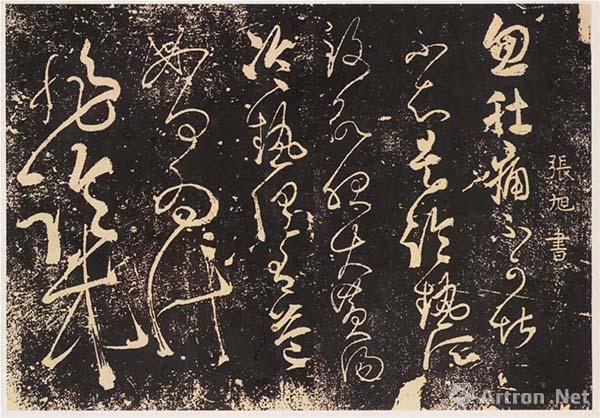 張旭書
忽肚痛不可堪
不知是冷熱所
致欲服大黃湯
冷熱俱有益
如何為計
非臨床
Artron.Net